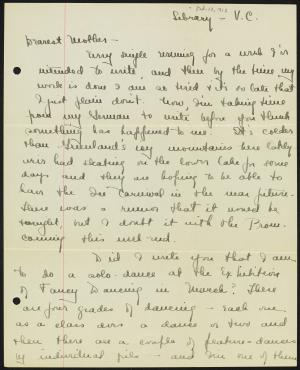 Feb. 13, 1913
Library - V.C.
Dearest Mother -
Every single evening for a week I've
intended to write, and then by the time my
work is done I am so tired & it's so late that
I just plain don't. Now I'm taking time
from my German to write before you think
something has happened to me. It's colder
than Greenland's icy mountains here lately
we've had skating on the lower lake for some
days and they are hoping to be able to
have the Ice Carnival in the near future.
There was a rumor that it would be
tonight, but I doubt it with the Prom.
coming this week-end.
Did I write you that I am
to do a solo-dance at the Exhibition
of Fancy Dancing in March? There
are four grades of dancing - each one
as a class does a dance or two and
then there are a couple of feature-dances
by individual girls - and I'm one of them